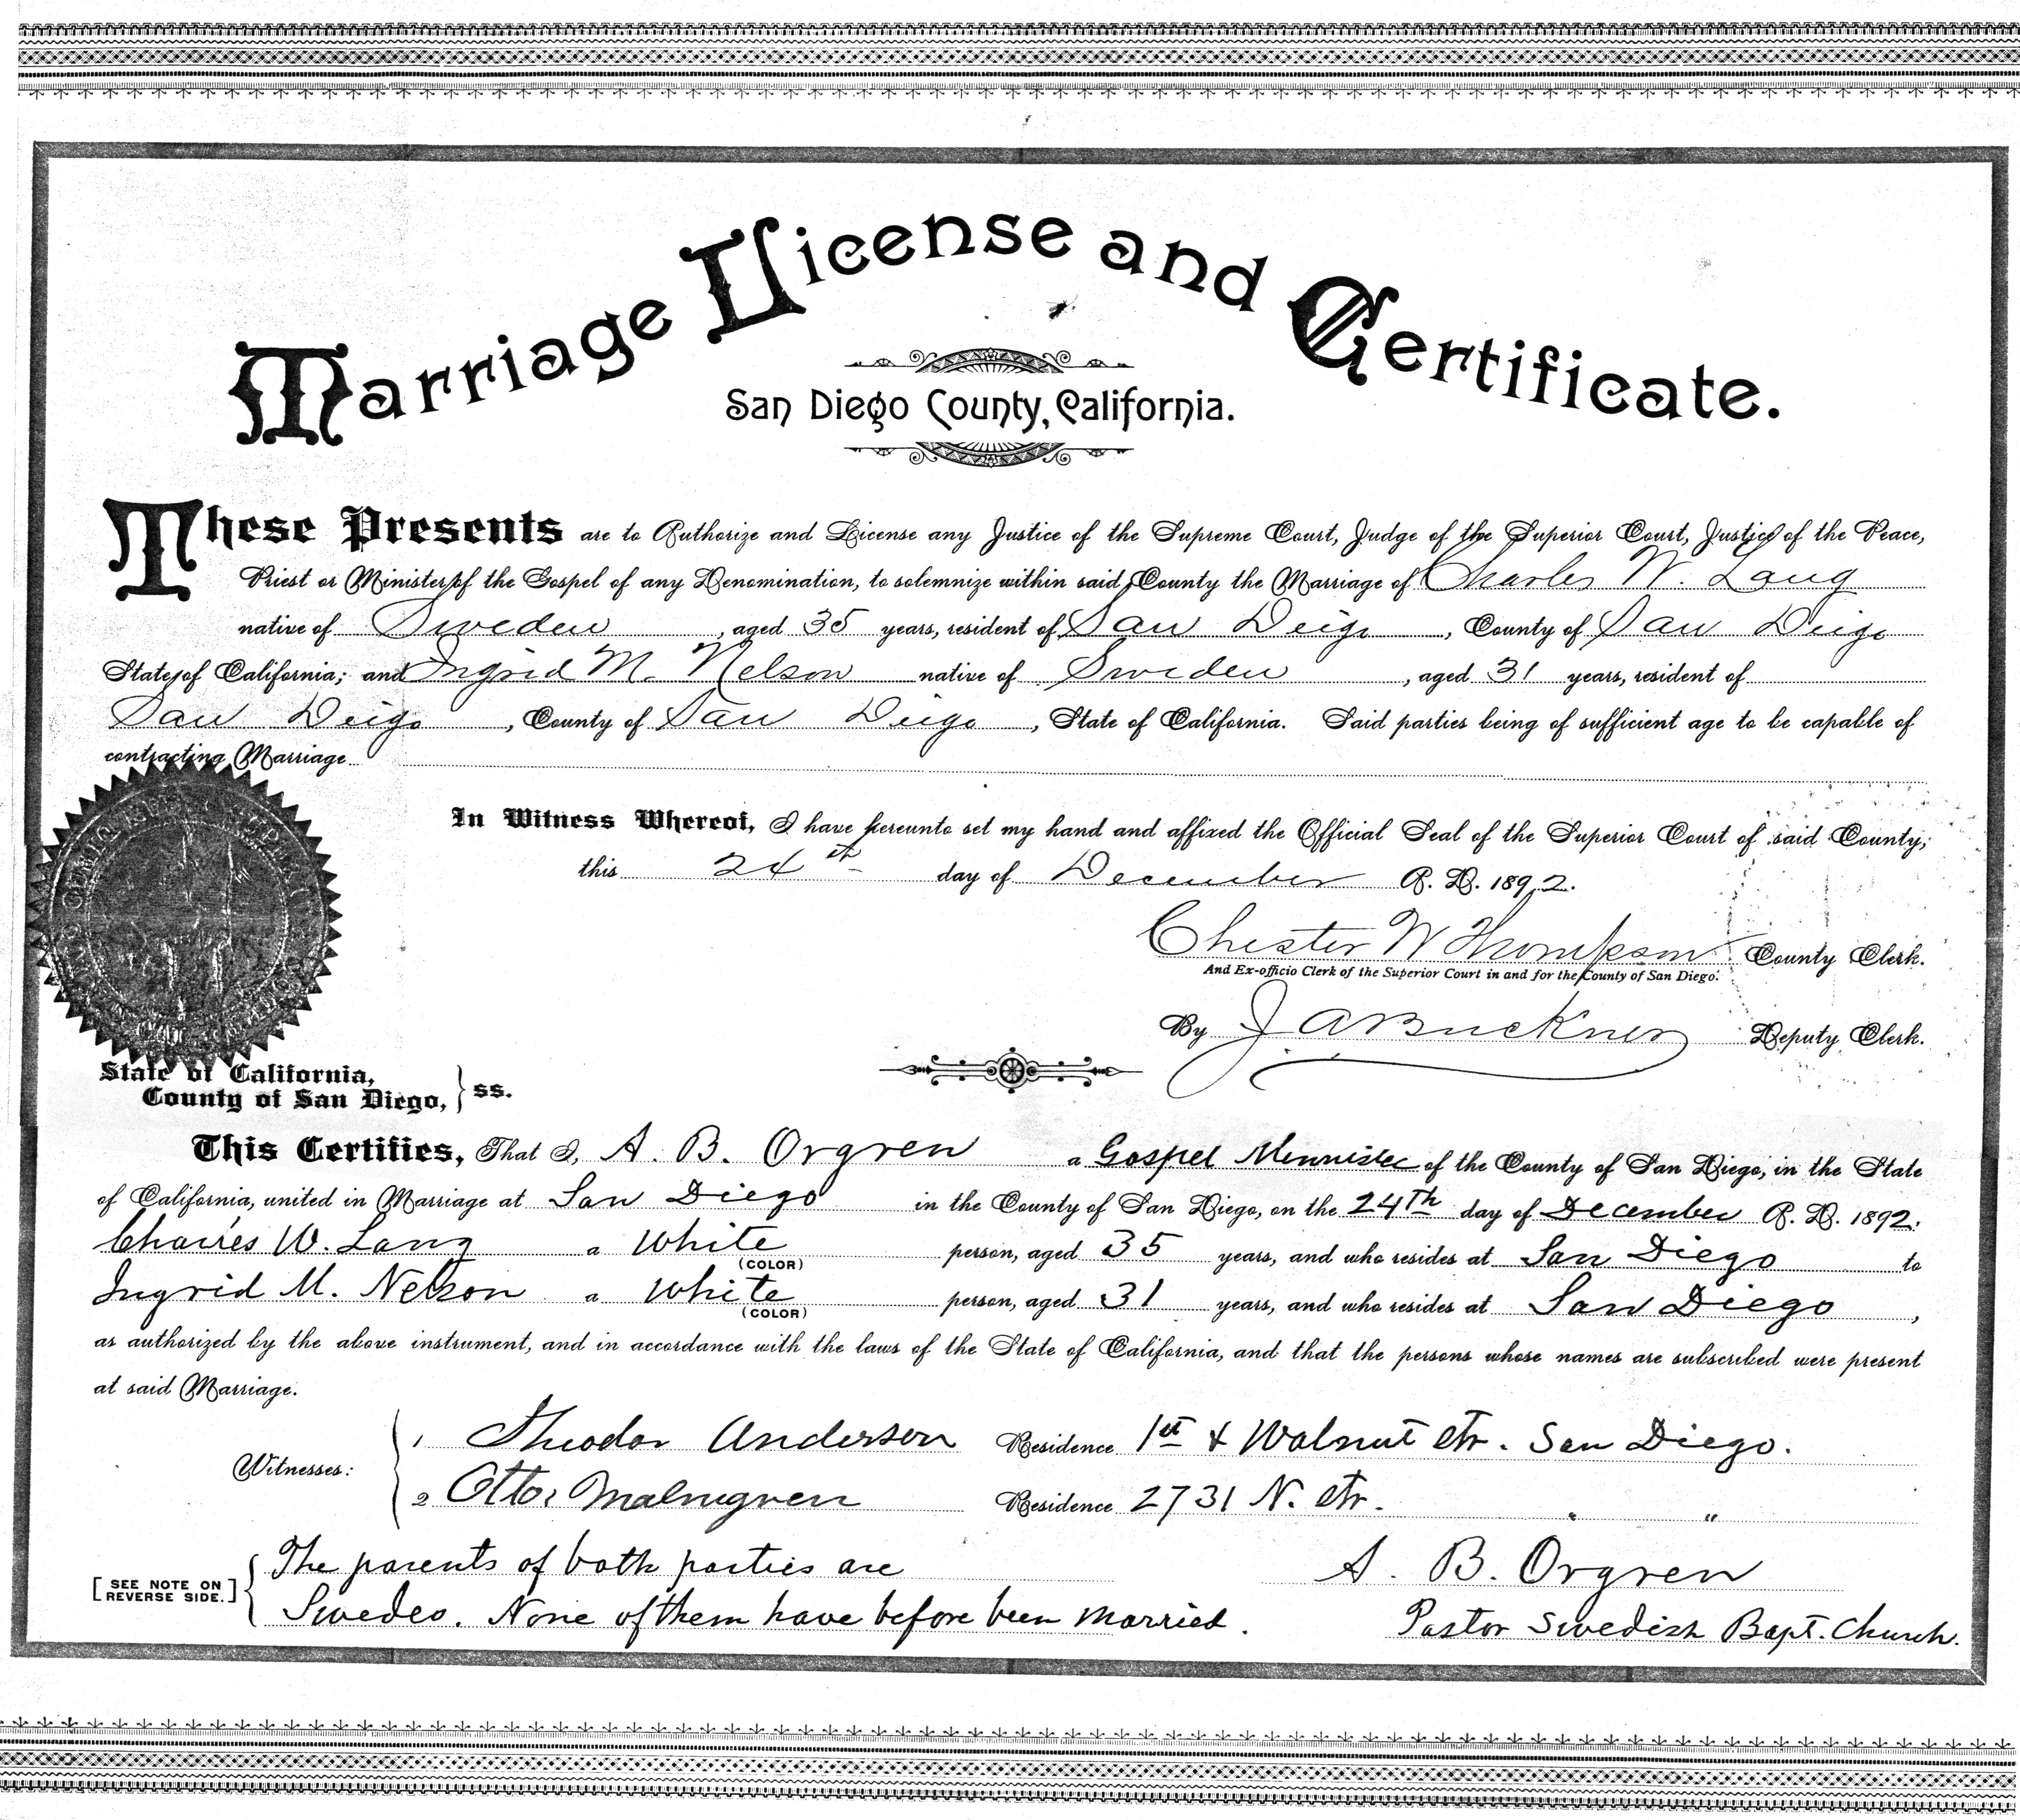 Marriage License and Certificate.
San Diego County, California.
These Presents are to Authorize and License any Justice of the Supreme Court, Judge of the Superior Court, Justice of the Peace,
Priest or Minister of the Gospel of any Denomination, to solemnize within said County the Marriage of Charles W. Lang
native of Sweden, aged 35 years, resident of San Deigo, County of San Deigo
State of California; and Ingrid M. Nelson native of Sweden, aged 31 years, resident of
San Deigo, County of San Deigo, State of California. Said parties being of sufficient age to be capable of
contracting Marriage
In Witness Whereof, I have hereunto set my hand and affixed the Official Seal of the Superior Court of said County,
this 24th day of December A. D. 1892.
Chester W Thompson County Clerk.
And Ex-officio Clerk of the Superior Court in and for the County of San Diego.
By J A Buckner Deputy Clerk.
State of California,
County of San Diego, } ss.
This Certifies, That I, A. B. Orgren a Gospel Minnister of the County of San Diego, in the State
of California, united in Marriage at San Diego in the County of San Diego, on the 24Th day of December A. D. 1892.
Charles W. Lang a White person, aged 35 years, and who resides at San Diego to
(COLOR)
Ingrid M. Nelson a White person, aged 31 years, and who resides at San Diego,
(COLOR)
as authorized by the above instrument, and in accordance with the laws of the State of California, and that the persons whose names are subscribed were present
at said Marriage.
Witnesses:
1 Theodor Anderson Residence 1st & Walnut str. San Diego.
2 Otto Malmgren Residence 2731 N. str. " "
[SEE NOTE ON
REVERSE SIDE.]
The parents of both parties are
Swedes. None of them have before been married.
A. B. Orgren
Pastor Swedish Bapt. Church.